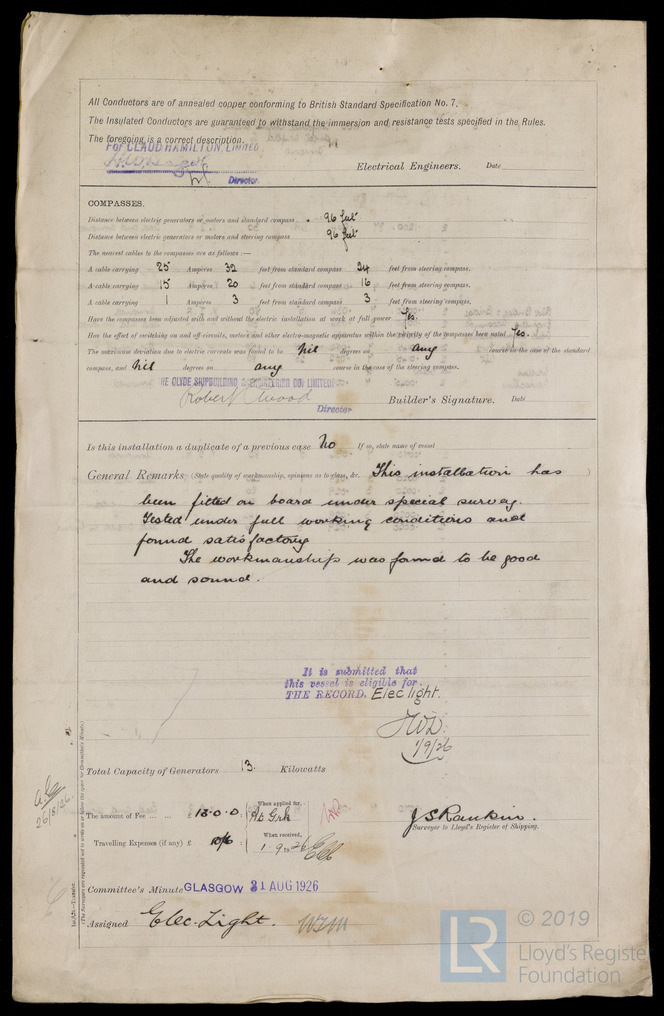 All Conductors are of annealed copper conforming to British Standard Specification No. 7.
The Insulated Conductors are guaranteed to withstand the immersion and resistance tests specified in the Rules.
The foregoing is a correct description.
For CLAUD HAMILTON, LIMITED
Electrical Engineers. Date
Director
COMPASSES.
Distance between electric generators or motors and standard compass 96 feet
Distance between electric generators or motors and steering compass 96 feet
The nearest cables to the compasses are as follows :—
A cable carrying 25 Ampères 32 feet from standard compass 24 feet from steering compass.
A cable carrying 15 Ampères 20 feet from standard compass 16 feet from steering compass.
A cable carrying 1 Ampères 3 feet from standard compass 3 feet from steering compass.
Have the compasses been adjusted with and without the electric installation at work at full power Yes.
Has the effect of switching on and off circuits, motors and other electro-magnetic apparatus within the vicinity of the compasses been noted Yes.
The maximum deviation due to electric currents was found to be Nil degrees on any course in the case of the standard
compass, and Nil degrees on any course in the case of the steering compass.
THE CLYDE SHIPBUILDING & ENGINEERING COY LIMITED
Robert Wood Builder's Signature. Date
Director
Is this installation a duplicate of a previous case No If so, state name of vessel
General Remarks (State quality of workmanship, opinions as to class, &c. This installation has
been fitted on board under special survey.
Tested under full working conditions and
found satisfactory
The workmanship was found to be good
and sound.
It is submitted that
this vessel is eligible for
THE RECORD. Elec light.
1/9/26
Total Capacity of Generators 13 Kilowatts
26/8/26
The amount of Fee ... ... £ 13.0.0 When applied for,
J S Rankin.
Surveyor to Lloyd's Register of Shipping.
Travelling Expenses (if any) £ 10/6 When received,
1.9.26
Committee's Minute GLASGOW 31 AUG 1926
Assigned Elec. Light.
(The Surveyors are requested not to write on or below the space for Committee's Minute.)
© 2019
LR
Lloyd's Registe
Foundation